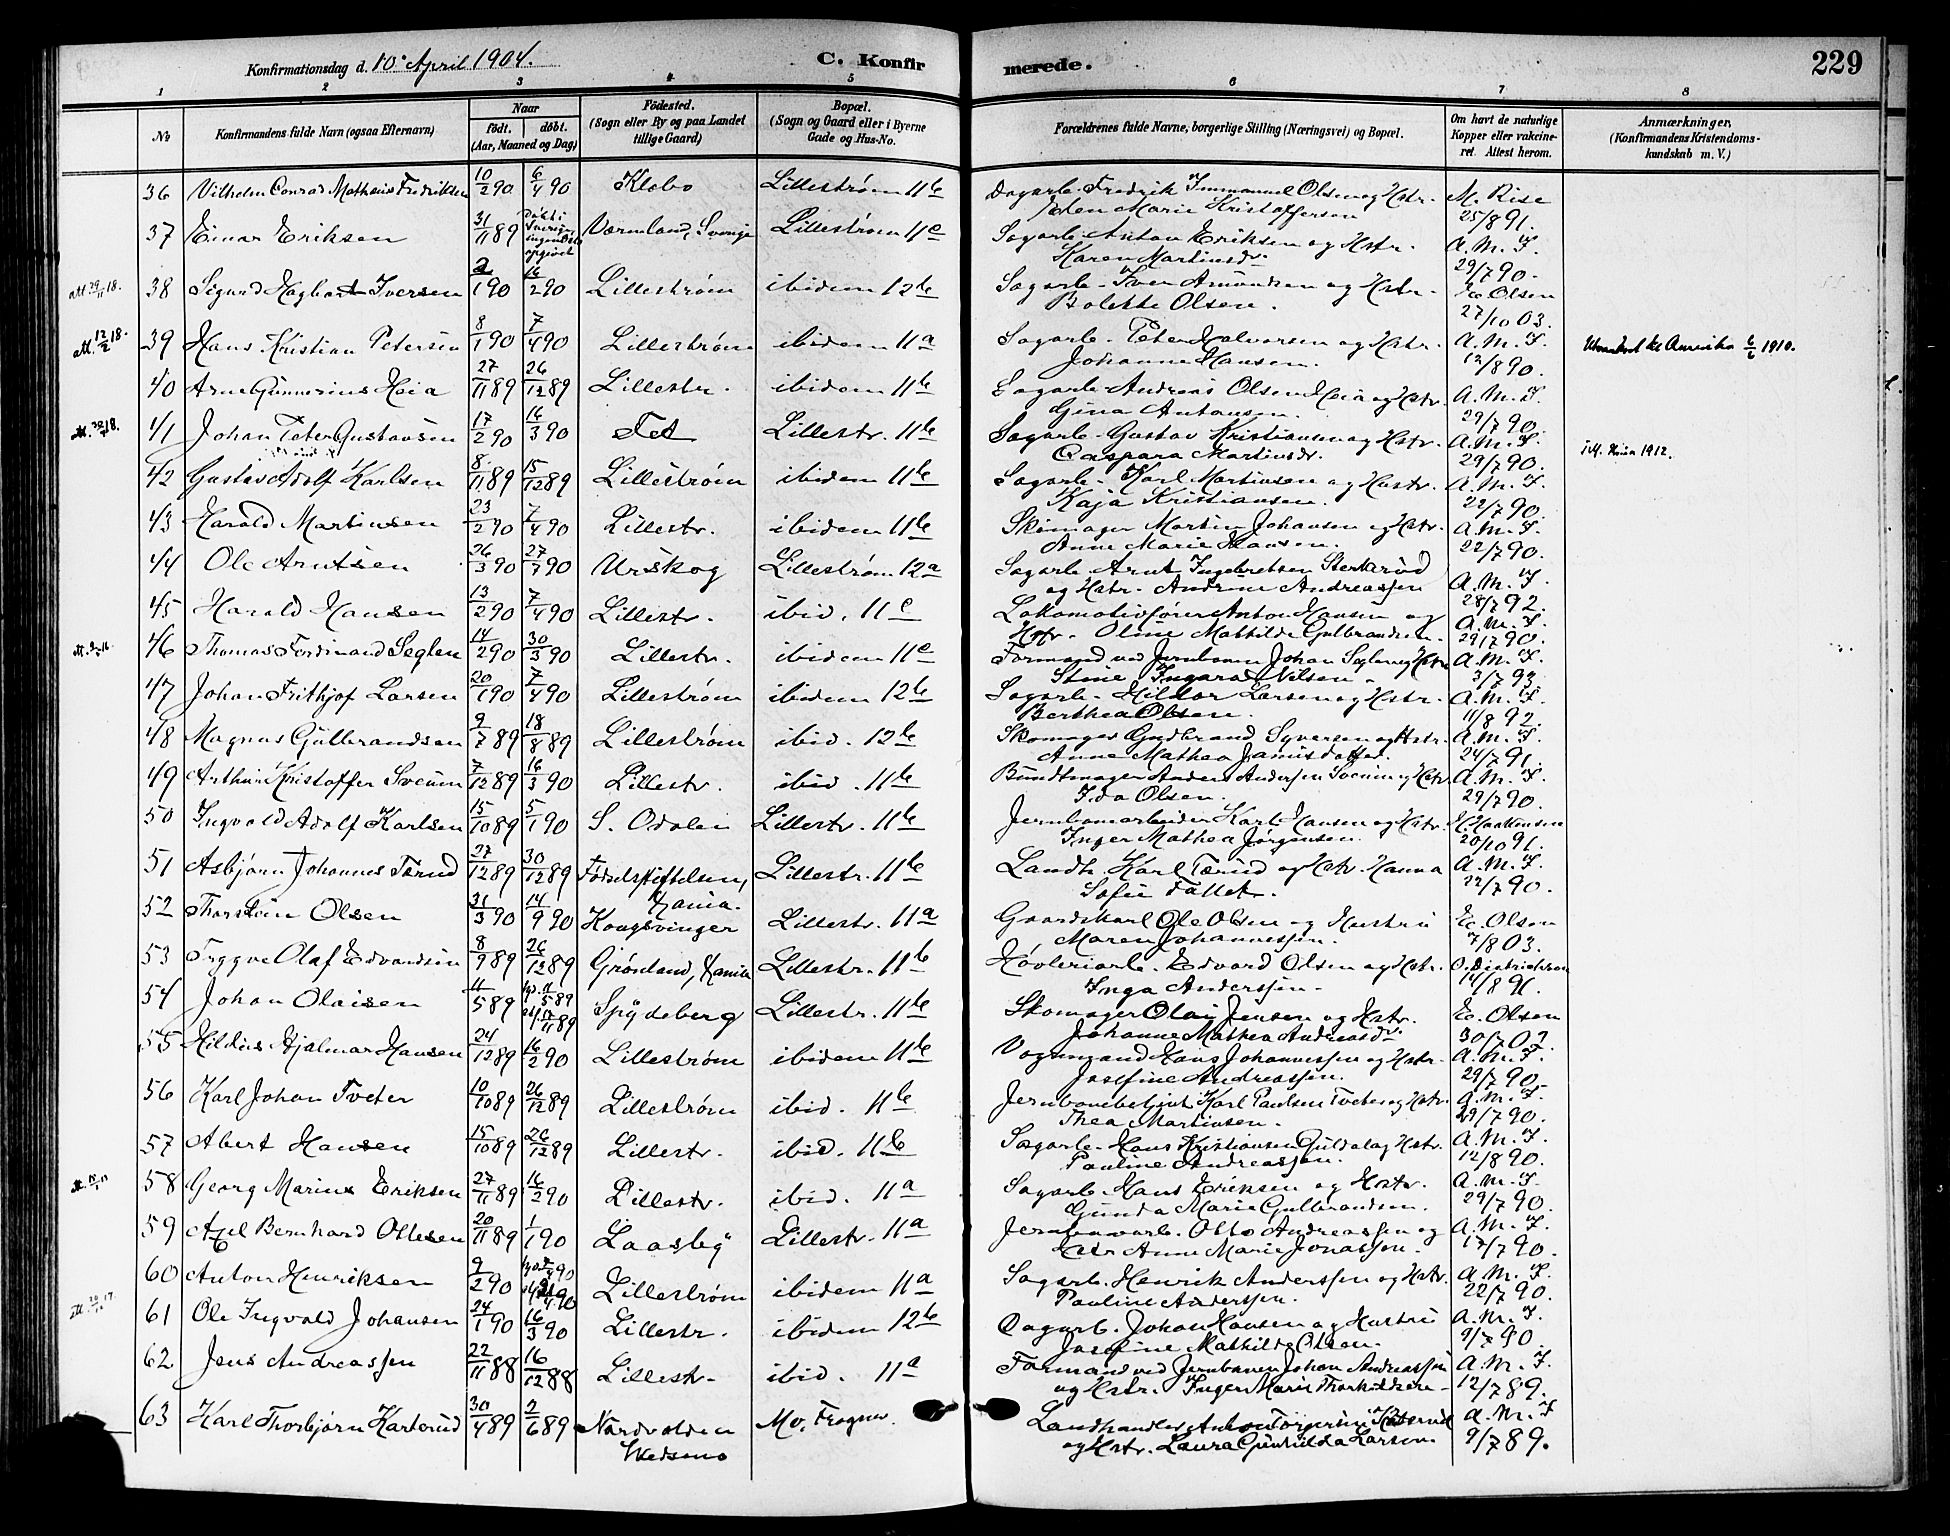 Konfirmationsdag d. 10' April 1904.
C. Konfirmerede.
229
1 2 3 4 5 6 7 8
No
Konfirmandens fulde Navn (ogsaa Efternavn)
Naar
födt. döbt.
(Aar, Maaned og Dag)
Födested.
(Sogn eller By og paa Landet
tillige Gaard)
Bopæl.
(Sogn og Gaard eller i Byerne
Gade og Hus-No.
Forældrenes fulde Navne, borgerlige Stilling (Næringsvei) og Bopæl.
Om havt de naturlige
Kopper eller vakcine-
ret. Attest herom.
Anmærkninger,
(Konfirmandens Kristendoms-
kundskab m. V.)
36 Vilhelm Conrad Mathæus Fredriksen 10/2 90 6/4 90 Kløbo Lillestrøm 11b Dagarb. Fredrik Immanuel Olsen og Hstr. M. Rise
Elen Marie Kristoffersen 25/8 91.
37 Einar Eriksen 31/11 89 Værmland, Sverige Lillestrøm 11c Sagarb. Anton Eriksen og Hstr. A. M. F.
Karen Martinsdr. 29/7 90.
38 Sigurd Hagbart Iversen 2/1 90 16/2 90 Lillestrøm ibidem 12b Sagarb. Iver Amundsen og Hstr. Olsen
Bolette Olsen. 27/10 03.
39 Hans Kristian Petersen 8/1 90 7/4 90 Lillestrøm ibidem 11a Sagarb. Peter Halvorsen og Hstr. A. M. F. Utvandret til Amerika 6/6 1910.
Johanne Hansen. 12/8 90.
40 Arne Gunnerius Heia 27/11 89 26/12 89 Lillestr. ibidem 11b Sagarb. Andreas Olsen Heia og Hstr. A. M. F.
Gina Antonsen. 29/7 90.
41 Johan Peter Gustavsen 17/2 90 16/3 90 Fet Lillestr. 11b Sagarb. Gustav Kristiansen og Hstr. A. M. F.
Caspara Martinsdr. 29/7 90.
42 Gustav Adolf Karlsen 8/11 89 15/12 89 Lillestrøm ibidem 11b Sagarb. Karl Martinsen og Hstr. A. M. F.
Kaja Kristiansen. 22/7 90.
43 Harald Martinsen 23/2 90 7/4 90 Lillestr. ibidem 11b Skomager Martin Johansen og Hstr. A. M. F.
Anne Marie Hansen. 22/7 90.
44 Ole Arntsen 26/3 90 27/7 90 Urskog Lillestrøm 12a Sagarb. Arnt Ingebretsen Sterkerud
og Hstr. Andrine Andreassen A. M. F.
45 Harald Hansen 13/2 90 7/4 90 Lillestr. ibid. 11c Lokomotivfører Anton Hansen og 28/7 92.
Hstr. Oline Mathilde Gulbrandsen. A. M. F. 29/7 90.
46 Thomas Ferdinand Seglen 14/2 90 30/3 90 Lillestr. ibidem 11c Formand ved Jernbanen Johan Seglen og Hstr. A. M. F.
Stine Ingarad Nilsen. 3/7 93.
47 Johan Frithjof Larsen 20/1 90 7/4 90 Lillestrøm ibidem 12b Sagarb. Hildor Larsen og Hstr. A. M. F.
Berthea Olsen. 11/8 92.
48 Magnus Gulbrandsen 9/7 89 18/8 89 Lillestrøm ibid. 12b Skomager Gudbrand Syversen og Hstr. A. M. F.
Anne Mathea Jamisdatter. 24/7 91.
49 Arthur Kristoffer Sveum 7/12 89 16/3 90 Lillestr. ibid. 11b Bundtmager Anders Andersen Sveum og Hstr. A. M. F.
Ida Olsen. 29/7 90.
50 Ingvald Adolf Karlsen 15/10 89 5/1 90 S. Odalen Lillestr. 11b Jernbanearbeider Karl Hansen og Hstr. H. Haakonsen
Inger Mathea Jørgensen. 20/10 91.
51 Asbjørn Johannes Tærud 27/12 89 30/12 89 Fødselsstiftelsen, Lillestr. 11b Landh. Karl Tærud og Hstr. Hanna A. M. F.
Kania. Sofie Fallet. 22/7 90.
52 Thorstein Olsen 31/3 90 14/9 90 Kongsvinger Lillestr. 11a Gaardskarl Ole Olsen og Hustru E. Olsen
Maren Johannessen. 7/8 03.
53 Trygve Olaf Edvardsen 8/9 89 26/12 89 Grønland, Kania Lillestr. 11b Høvleriarb. Edvard Olsen og Hstr. O. Dietrichson
Inga Anderssen. 14/8 91.
54 Johan Olaisen 11/5 89 Spydeberg Lillestr. 11b Skomager Olai Jensen og Hstr. E. Olsen
Johanne Mathea Andreasdr.
55 Hildus Hjalmar Hansen 24/12 89 16/2 90 Lillestrøm ibidem 11b Vognmand Hans Johannessen og Hstr. A. M. F.
Josefine Andreassen. 29/7 90.
56 Karl Johan Tveter 10/10 89 26/12 89 Lillestrøm ibid. 11b Jernbanebetjent Karl Paulsen Tveter og Hstr. A. M. F.
Thea Martinsen. 29/7 90.
57 Abert Hansen 15/10 89 26/12 89 Lillestr. ibid. 11b Sagarb. Hans Kristiansen Guldal og Hstr. A. M. F.
Pauline Andreassen. 12/8 90.
58 Georg Marius Eriksen 27/11 89 16/2 90 Lillestr. ibid. 11a Sagarb. Hans Eriksen og Hstr. A. M. F.
Gunda Marie Gulbrandsen. 29/7 90.
59 Axel Bernhard Ottesen 20/11 89 1/1 90 Laasby Lillestr. 11a Jernbanearb. Otto Andreassen og A. M. F.
Hstr. Anne Marie Jonassen. 17/7 90.
60 Anton Henriksen 9/2 90 Lillestrøm ibidem 11a Sagarb. Henrik Anderssen og Hstr. A. M. F.
Pauline Anderssen. 22/7 90.
61 Ole Ingvald Johansen 24/1 90 16/3 90 Lillestr. ibidem 12b Dagarb. Johan Hansen og Hustru A. M. F.
Josefine Mathilde Olsen. 9/7 90.
62 Jens Andreassen 22/11 88 16/12 88 Lillestr. ibid. 11a Formand ved Jernbanen Johan Andreassen A. M. F.
og Hstr. Inger Marie Thorkildsen. 12/7 89.
63 Karl Thorbjørn Karterud 30/4 89 2/6 89 Nordvolden Mo, Frogner. Landhandler Anton Torgersen Karterud A. M. F.
Skedsmo og Hstr. Laura Gunhilda Larsen. 9/7 89.